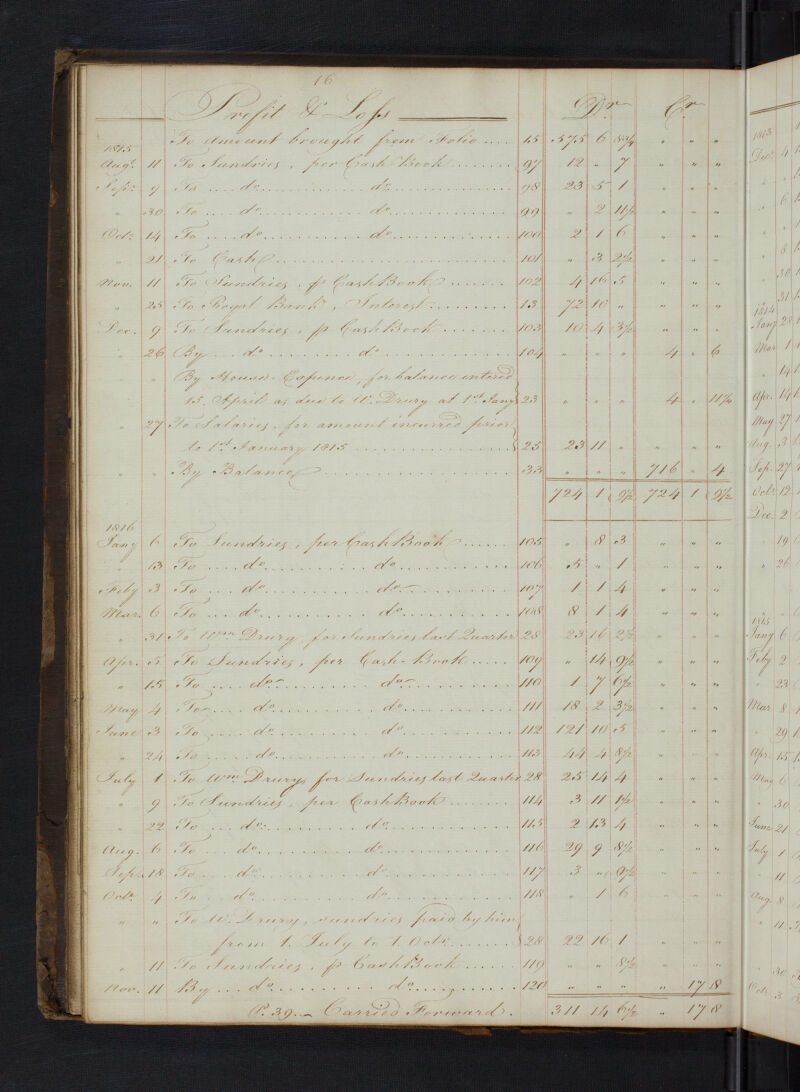 16
Profit & Loss Dr. Cr.
To Amount brought from Folio .... 15 575 6 8¾ " " "
1815
Augt. 11 To Sundries, per Cash Book ....... 97 12 " 7 " " "
Sepr. 9 To .... do. ............ do. ............ 98 23 5 1 " " "
" 30 To .... do. ............ do. ............ 99 " 2 11½ " " "
Octr. 14 To .... do. ............ do. ............ 100 2 1 6 " " "
" 21 To Cash ............ 101 " 3 2½ " " "
Nov. 11 To Sundries, p Cash Book ........ 102 4 16 5 " " "
" 25 To Royal Bank, Interest ........ 13 72 10 " " " "
Dec. 9 To Sundries, p Cash Book ....... 103 10 4 3½ " " "
" 26 By .... do. ............ do. ............ 104 " " " 4 " 6
" " By House-Expence, for balance entered
15. April as due to W. Drury at 1st Jany 23 " " " 4 " 11½
" 27 To Salaries, for amount incurred prior
to 1st January 1815 ............ 25 23 11 " " " "
" " By Balance ............ 33 " " " 716 " 4
724 1 9½ 724 1 9½
1816
Jany 6 To Sundries, per Cash Book ...... 105 " 8 3 " " "
" 13 To .... do. ............ do. ............ 106 5 " 1 " " "
Feby 3 To .... do. ............ do. ............ 107 1 1 4 " " "
Mar. 6 To .... do. ............ do. ............ 108 8 1 4 " " "
" 31 To Wm Drury, for Sundries last Quarter 28 23 16 2½ " " "
Apr. 5 To Sundries, per Cash-Book ..... 109 " 14 9½ " " "
" 15 To .... do. ............ do. ............ 110 1 7 6½ " " "
May 4 To .... do. ............ do. ............ 111 18 2 3½ " " "
June 3 To .... do. ............ do. ............ 112 121 10 5 " " "
" 24 To .... do. ............ do. ............ 113 44 4 8½ " " "
July 1 To Wm Drury, for Sundries last Quarter 28 25 14 4 " " "
" 9 To Sundries, per Cash Book ........ 114 3 11 1½ " " "
" 22 To .... do. ............ do. ............ 115 2 13 4 " " "
Aug. 6 To .... do. ............ do. ............ 116 29 9 8½ " " "
Sepr. 18 To .... do. ............ do. ............ 117 3 " 9½ " " "
Octr. 4 To .... do. ............ do. ............ 118 " 1 6 " " "
" " To W. Drury, sundries paid by him
from 1. July to 1. Octr. ........ 28 22 16 1 " " "
" 11 To Sundries, p Cash Book ...... 119 " " 8½ " " "
Nov. 11 By .... do. ............ do. ............ 120 " " " " 17 8
P. 39. Carried Forward. 311 14 6½ " 17 8
1813
Decr. 4
" 6
" 8
" 30
" 31
1814
Jany 28
Mar 1
" 14
Apr. 14
May 27
Aug. 3
Sep. 27
Octr. 12
Dec. 2
" 19
" 26
1815
Jany 6
Feby 2
" 23
Mar 8
" 29
Apr. 15
May 6
" 30
June 21
July 1
" 11
Aug 8
" 11
" 30
Octr. 3